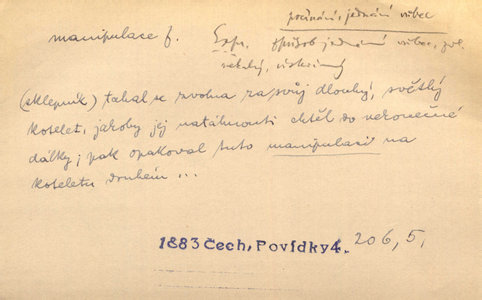 počínání, jednání vůbec
manipulace f. Expr. způsob jednání vůbec, zvl.
(sklepník) tahal se zvolna za svůj dlouhý, světlý
kotelet, jakoby jej natáhnouti chtěl do nekonečné
dálky; pak opakoval tuto manipulaci na
koteletu druhém ...
1883 Čech, Povídky 4. 206,5.